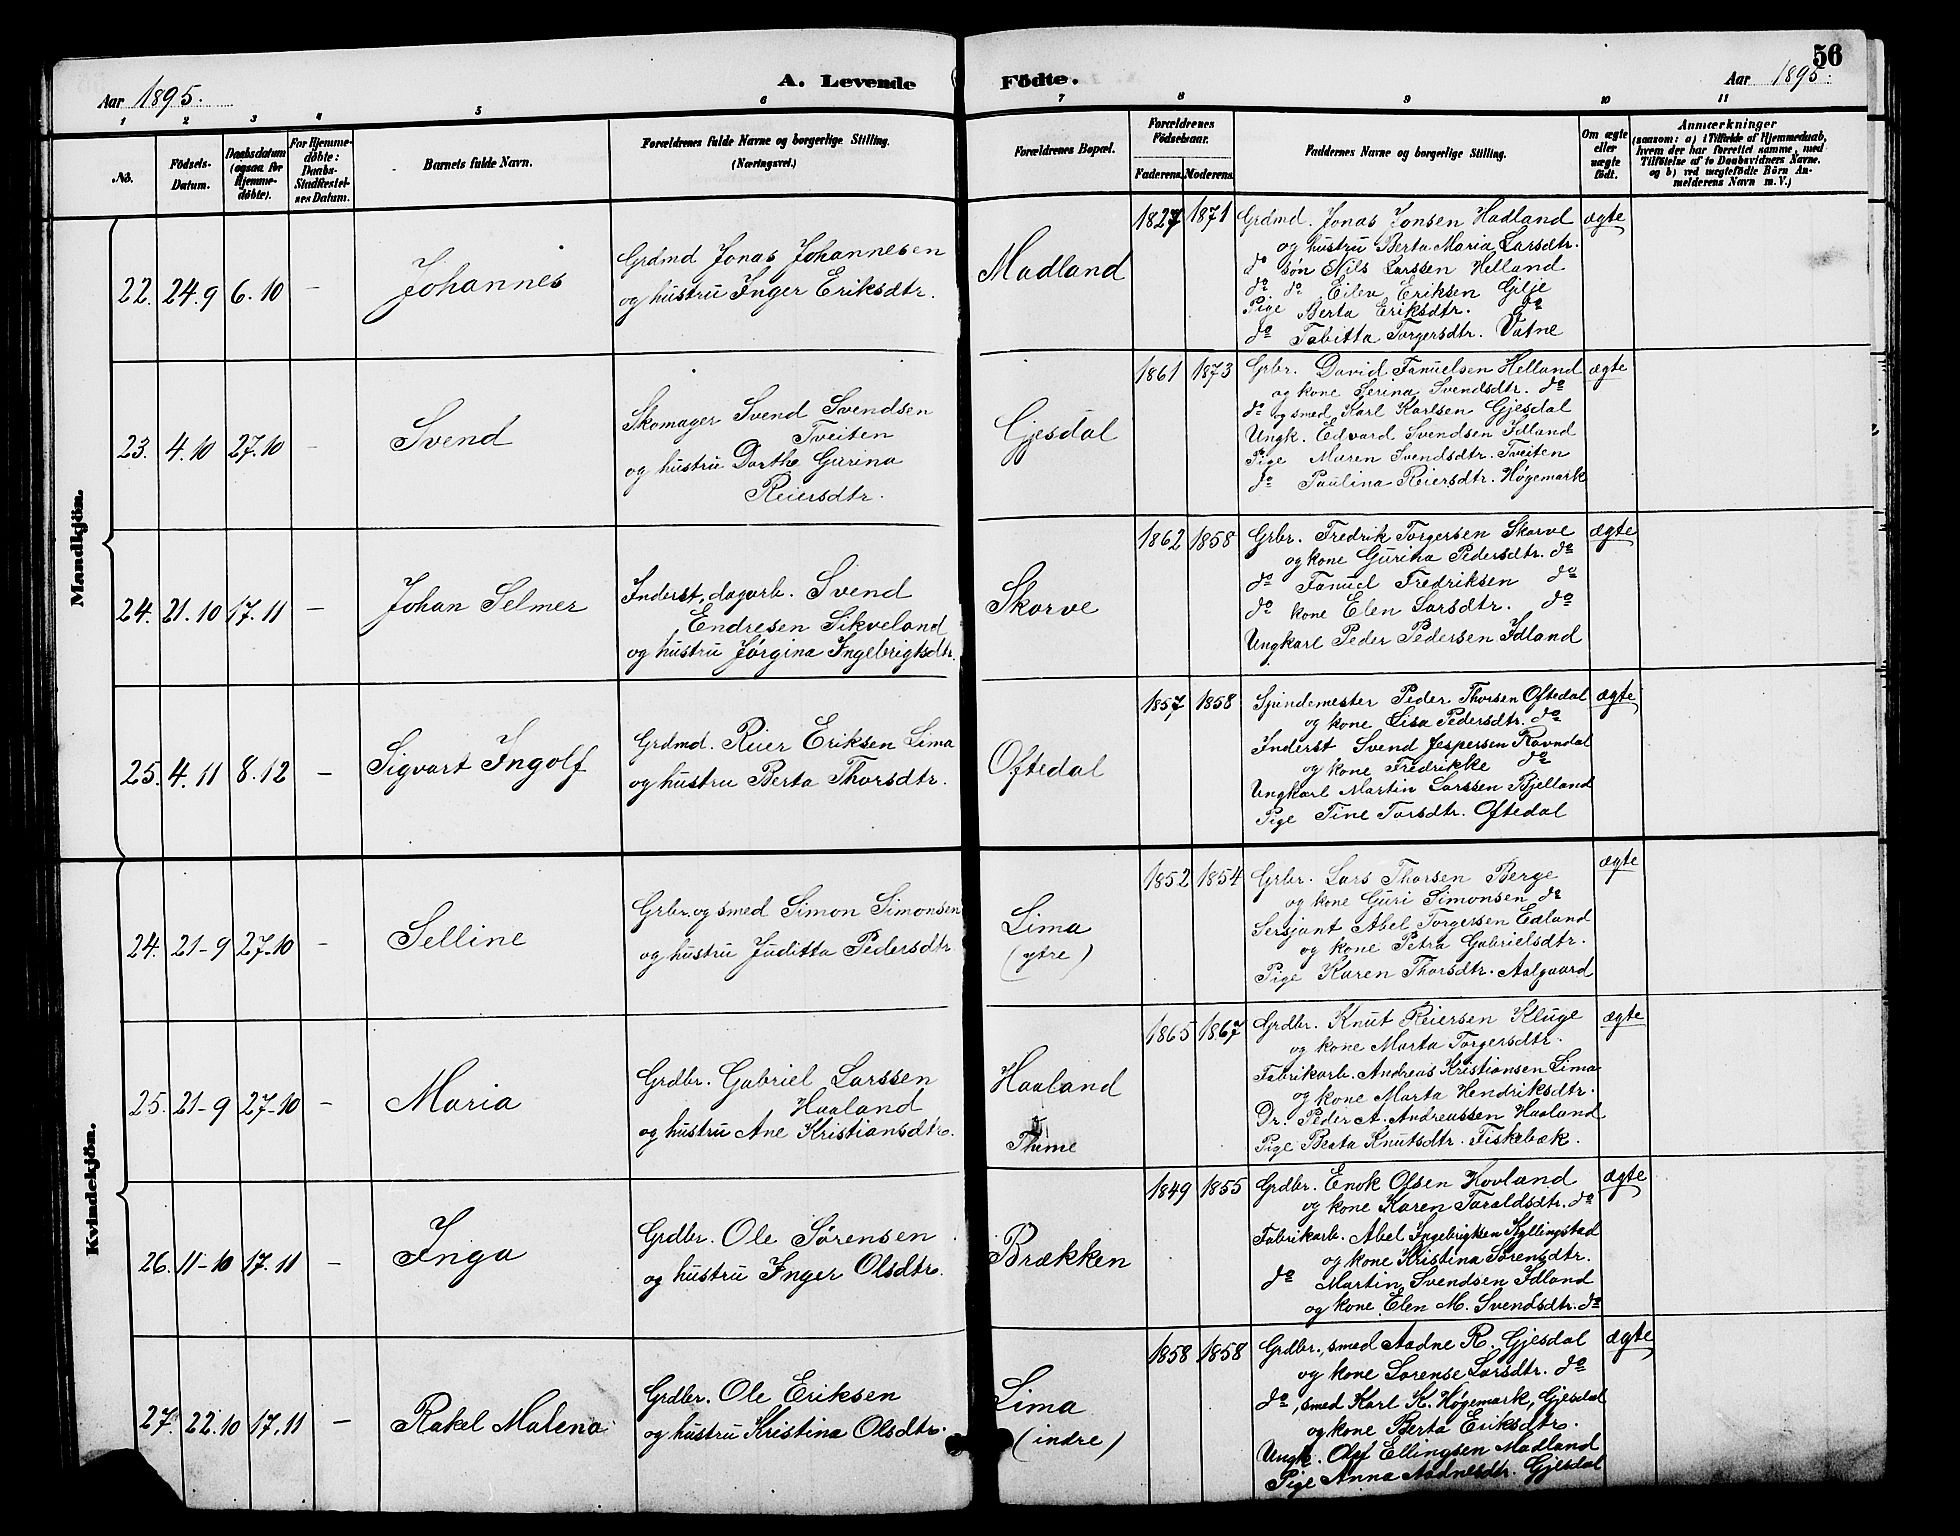 56
Aar 1895.
A. Levende Födte.
Aar 1895.
1 2 3 4 5 6 7 8 9 10 11
No.
Födsels-
Datum.
Daabsdatum
(ogsaa for
Hjemme-
døbte).
For Hjemme-
døbte:
Daabs-
Stadfæstel-
ses Datum.
Barnets fulde Navn.
Forældrenes fulde Navne og borgerlige Stilling.
(Næringsvei.)
Forældrenes Bopæl.
Forældrenes
Födselsaar.
Faderens. Moderens.
Faddernes Navne og borgerlige Stilling.
Om ægte
eller
uægte
født.
Anmærkninger
(saasom: a) i Tilfælde af Hjemmedaab,
hvem der har forrettet samme, med
Tilføielse af to Daabsvidners Navne.
og b) ved uægtefødte Börn An-
melderens Navn m. V.)
Mandkjön.
22. 24.9 6.10 – Johannes
Grdmd Jonas Johannesen
og hustru Inger Eriksdtr.
Madland
1827 1871
Grdmd. Jonas Jonsen Hadland
og hustru Berta Maria Larsdtr.
do søn Nils Larssen Helland
do do Eilev Eriksen Gilje
Pige Berta Eriksdtr. do
do Tabitta Torgersdtr. Vatne
ægte
23. 4.10 27.10 – Svend
Skomager Svend Svendsen
Tveiten
og hustru Dorthe Gurina
Reiersdtr.
Gjesdal
1861 1873
Grbr. David Fanuelsen Helland
og kone Serina Svendsdtr. do
do og smed Karl Karlsen Gjesdal
Ungk. Edvard Svendsen Idland
Pige Maren Svendsdtr. Tveiten
do Paulina Reiersdtr. Høgemark
ægte
24. 21.10 17.11 – Johan Selmer
Inderst, dagarb. Svend
Endresen Sikveland
og hustru Jørgina Ingebrigtsdtr.
Skarve
1862 1858
Grbr. Fredrik Torgersen Skarve
og kone Gurina Pedersdtr. do
do Fanuel Fredriksen do
do kone Elen Larsdtr. do
Ungkarl Peder Pedersen Idland
ægte
25. 4.11 8.12 – Sigvart Ingolf
Grdmd. Reier Eriksen Lima
og hustru Berta Thorsdtr.
Oftedal
1857 1858
Spindemester Peder Thorsen Oftedal
og kone Lisa Pedersdtr. do
Inderst Svend Jespersen Ravndal
og kone Fredrikke do
Ungkarl Martin Larssen Bjelland
Pige Tine Torsdtr. Oftedal
ægte
Kvindekjön.
24. 21-9 27-10 – Selline
Grbr. og smed Simon Simonsen
og hustru Juditta Pedersdtr.
Lima
(ytre)
1852 1854
Grbr. Lars Thorsen Berge
og kone Guri Simonsen do
Sersjant Abel Torgersen Edland
og kone Petra Gabrielsdtr.
Pige Karen Thorsdtr. Aalgaard
ægte
25. 21-9 27-10 – Maria
Grdbr. Gabriel Larssen
Haaland
og hustru Ane Kristiansdtr.
Haaland
i
Thime
1865 1867
Grdbr. Knut Reiersen Kluge
og kone Marta Torgersdtr.
Fabrikarb. Andreas Kristiansen Lima
og kone Marta Hendriksdtr.
Dr. Peder A. Andreassen Haaland
Pige Berta Knutsdtr. Fiskebæk.
ægte
26. 11-10 17.11 – Inga
Grdbr. Ole Sørensen
og hustru Inger Olsdtr.
Brækken
1849 1855
Grdbr. Enok Olsen Hovland
og kone Karen Taraldsdtr. do
Fabrikarb. Abel Ingebrigtsen Kyllingstad
og kone Kristina Sørensdtr.
do Martin Svendsen Idland
og kone Elen M. Svendsdtr. do
ægte
27. 22.10 17.11 – Rakel Malena
Grdbr. Ole Eriksen
og hustru Kristina Olsdtr.
Lima
(indre)
1858 1858
Grdbr., smed Aadne R. Gjesdal
og kone Sørense Larsdtr. do
do, smed Karl K. Høgemark, Gjesdal
og kone Berta Eriksdtr.
Ungk. Olaf Ellingsen Madland
Pige Anna Aadnesdtr. Gjesdal
ægte